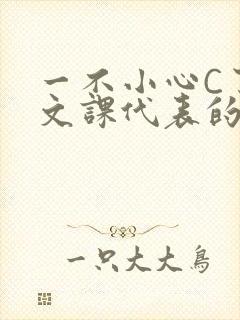 一不小心C
文課代表的
一只大大鳥